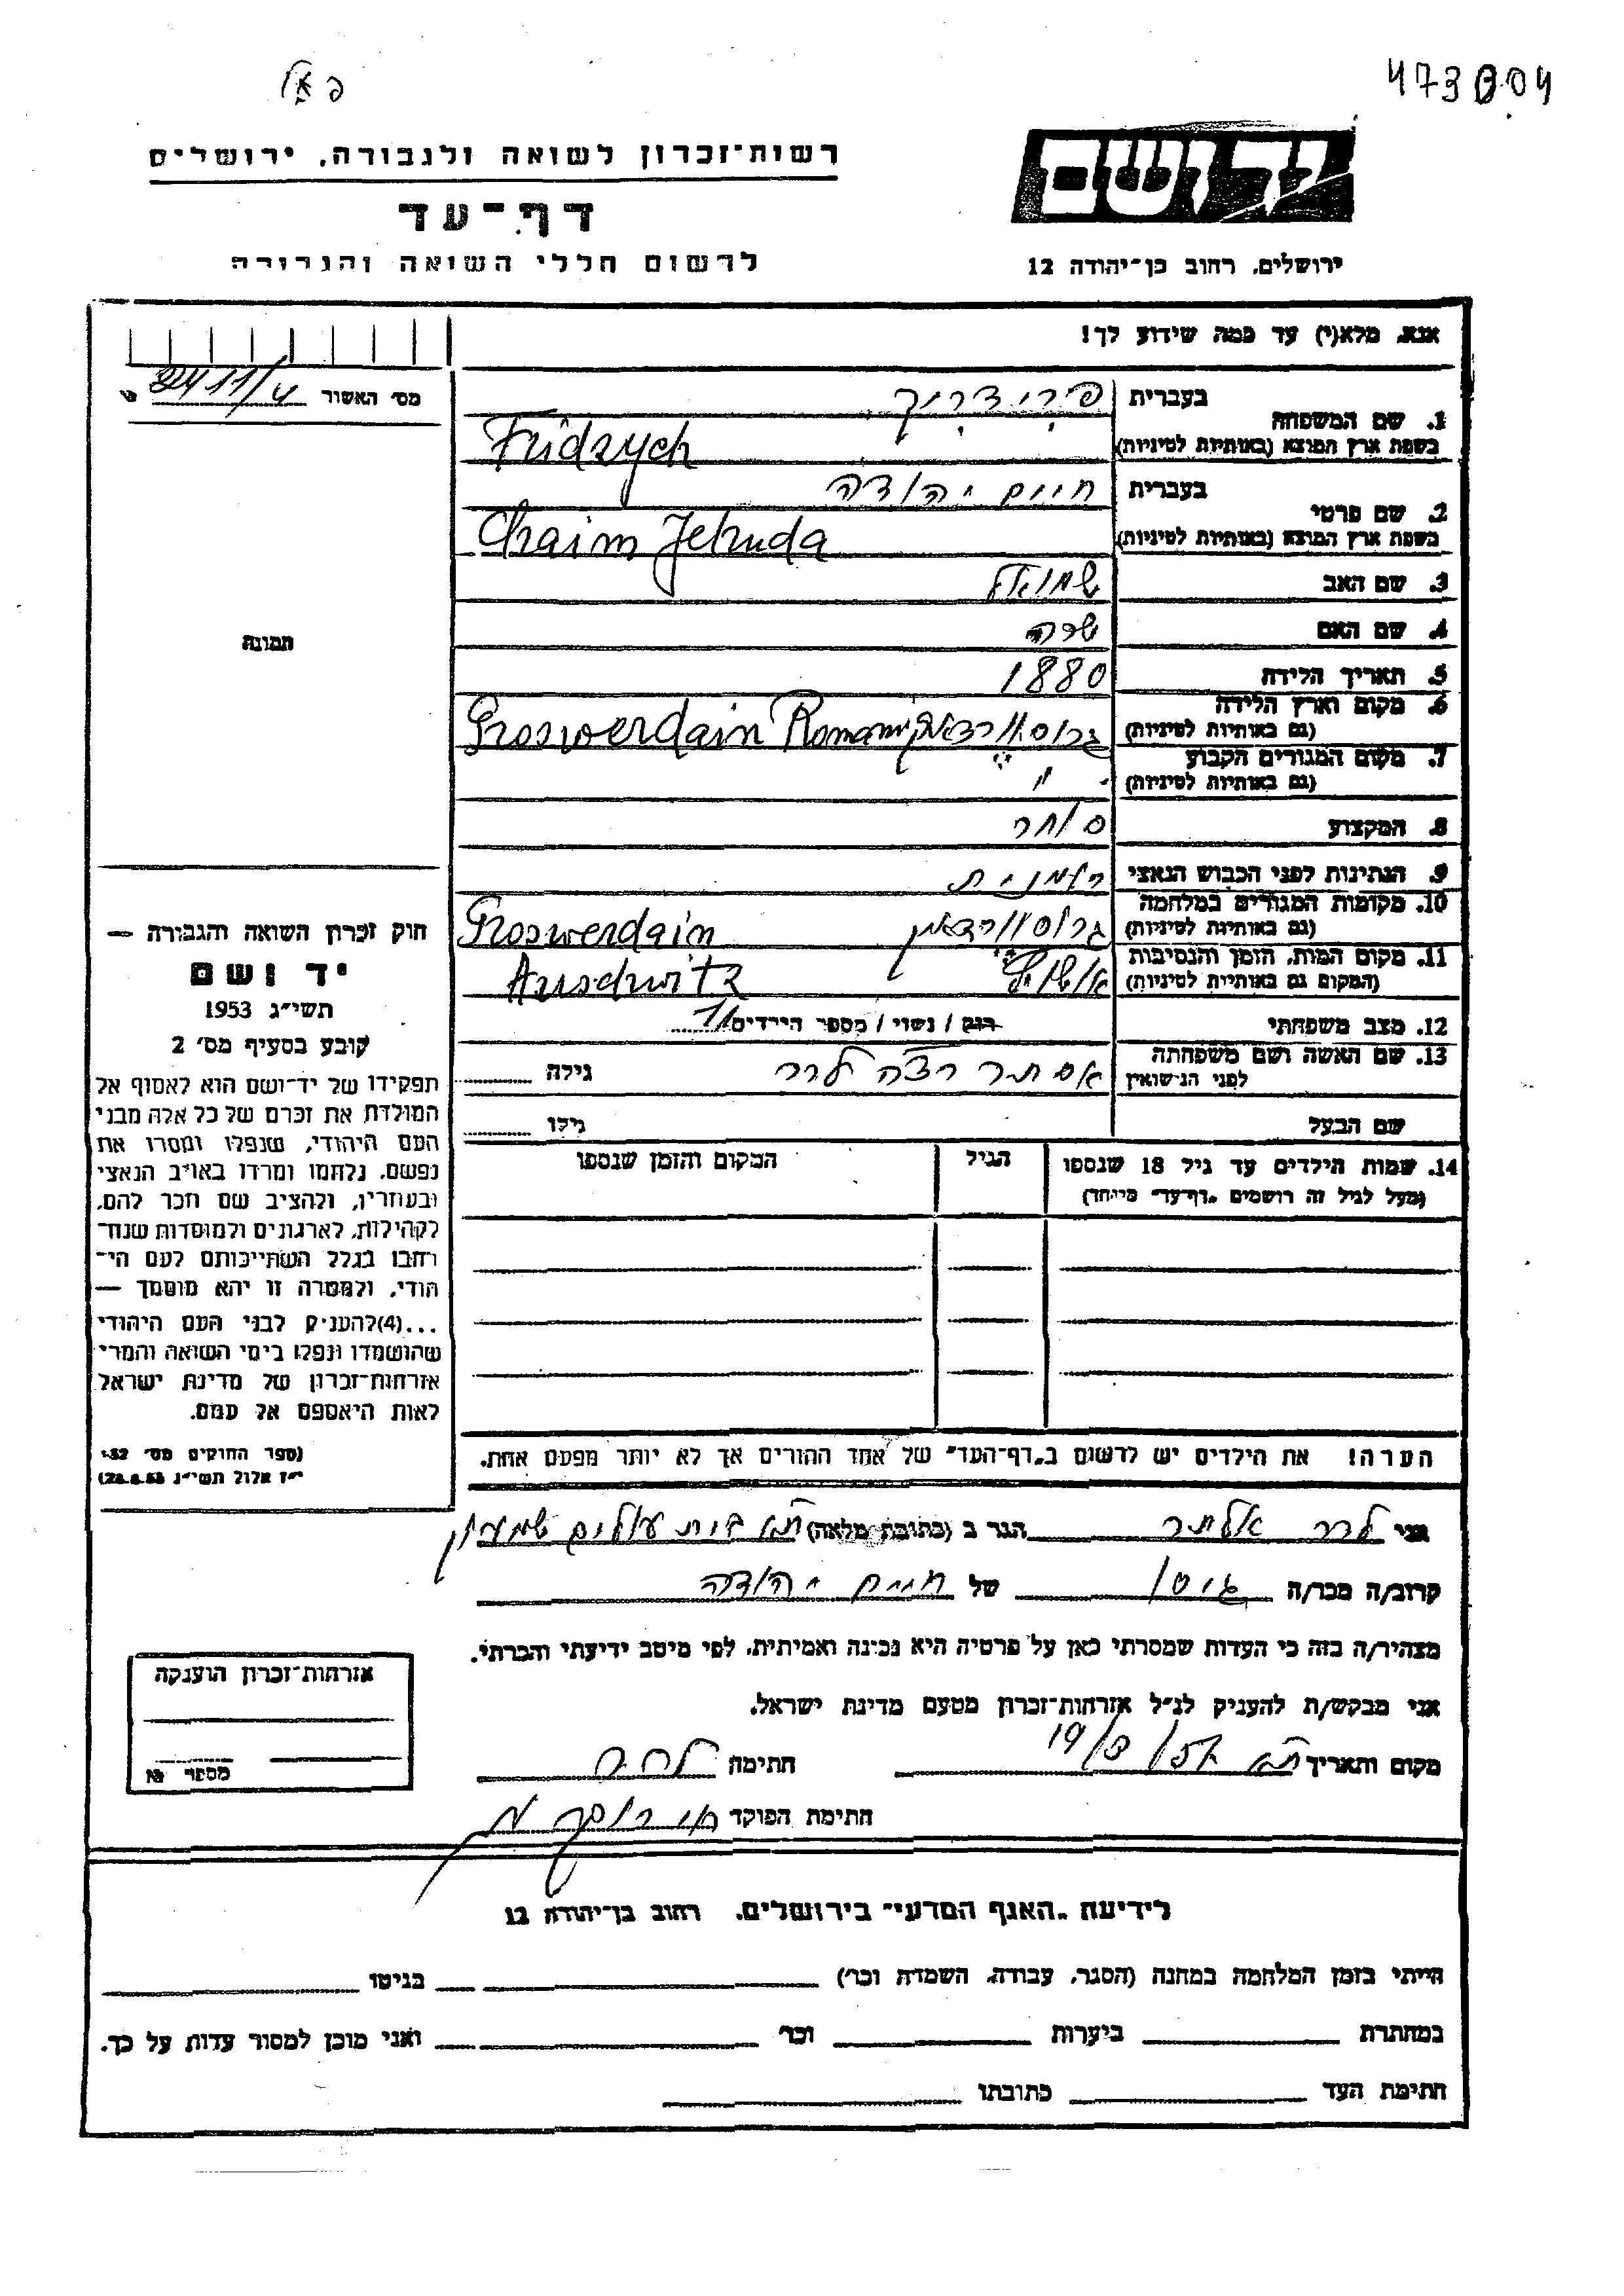 473004
רשות־זכרון לשואה ולגבורה, ירושלים
דף־עד
לרשום חללי השואה והגבורה
יד ושם
ירושלים, רחוב בן־יהודה 12
אנא, מלא(י) עד כמה שידוע לך!
מס' האשור
1. שם המשפחה
בעברית פרידריך
בשפת ארץ המוצא (באותיות לטיניות) Fridrych
2. שם פרטי
בעברית חיים יהודה
בשפת ארץ המוצא (באותיות לטיניות) Chaim Jehuda
3. שם האב שמואל
4. שם האם שרה
5. תאריך הלידה 1880
6. מקום וארץ הלידה
(גם באותיות לטיניות) גרוסוורדיין Groswerdain
7. מקום המגורים הקבוע
(גם באותיות לטיניות) - " -
8. המקצוע סוחר
9. הנתינות לפני הכבוש הנאצי רומנית
10. מקומות המגורים במלחמה
(גם באותיות לטיניות) גרוסוורדיין Groswerdain
11. מקום המות, הזמן והנסיבות
(המקום גם באותיות לטיניות) אושוויץ Auschwitz
12. מצב משפחתי רווק / נשוי / מספר הילדים
13. שם האשה ושם משפחתה
לפני הנישואין אסתר לרר גילה
שם הבעל גילו
14. שמות הילדים עד גיל 18 שנספו הגיל המקום והזמן שנספו
(מעל לגיל זה רושמים "דף־עד" מיוחד)
הערה! את הילדים יש לרשום ב"דף־העד" של אחד ההורים אך לא יותר מפעם אחת.
תמונה
חוק זכרון השואה והגבורה —
יד ושם
תשי"ג 1953
קובע בסעיף מס' 2
תפקידו של יד־ושם הוא לאסוף אל
המולדת את זכרם של כל אלה מבני
העם היהודי, שנפלו ומסרו את
נפשם, נלחמו ומרדו באויב הנאצי
ובעוזריו, ולהציב שם וזכר להם,
לקהילות, לארגונים ולמוסדות שנח־
רבו בגלל השתייכותם לעם הי־
הודי, ולמטרה זו יהא מוסמך —
...(4) להעניק לבני העם היהודי
שהושמדו ונפלו בימי השואה והמרי
אזרחות־זכרון של מדינת ישראל
לאות היאספם אל עמם.
(ספר החוקים מס' 132
י"ז אלול תשי"ג 28.8.53)
אני לרר הגר ב (כתובת מלאה) ת"א בית עולים שמעון
קרוב/ה מכר/ה גיסו של חיים יהודה
מצהיר/ה בזה כי העדות שמסרתי כאן על פרטיה היא נכונה ואמיתית, לפי מיטב ידיעתי והכרתי.
אני מבקש/ת להעניק לנ"ל אזרחות־זכרון מטעם מדינת ישראל.
מקום ותאריך ת"א חתימה לרר
חתימת הפוקד
אזרחות־זכרון הוענקה
מספר №
לידיעת "האגף המדעי" בירושלים, רחוב בן־יהודה 12
הייתי בזמן המלחמה במחנה (הסגר, עבודה, השמדה וכו') בגיטו
במחתרת ביערות וכו' ואני מוכן למסור עדות על כך.
חתימת העד כתובתו